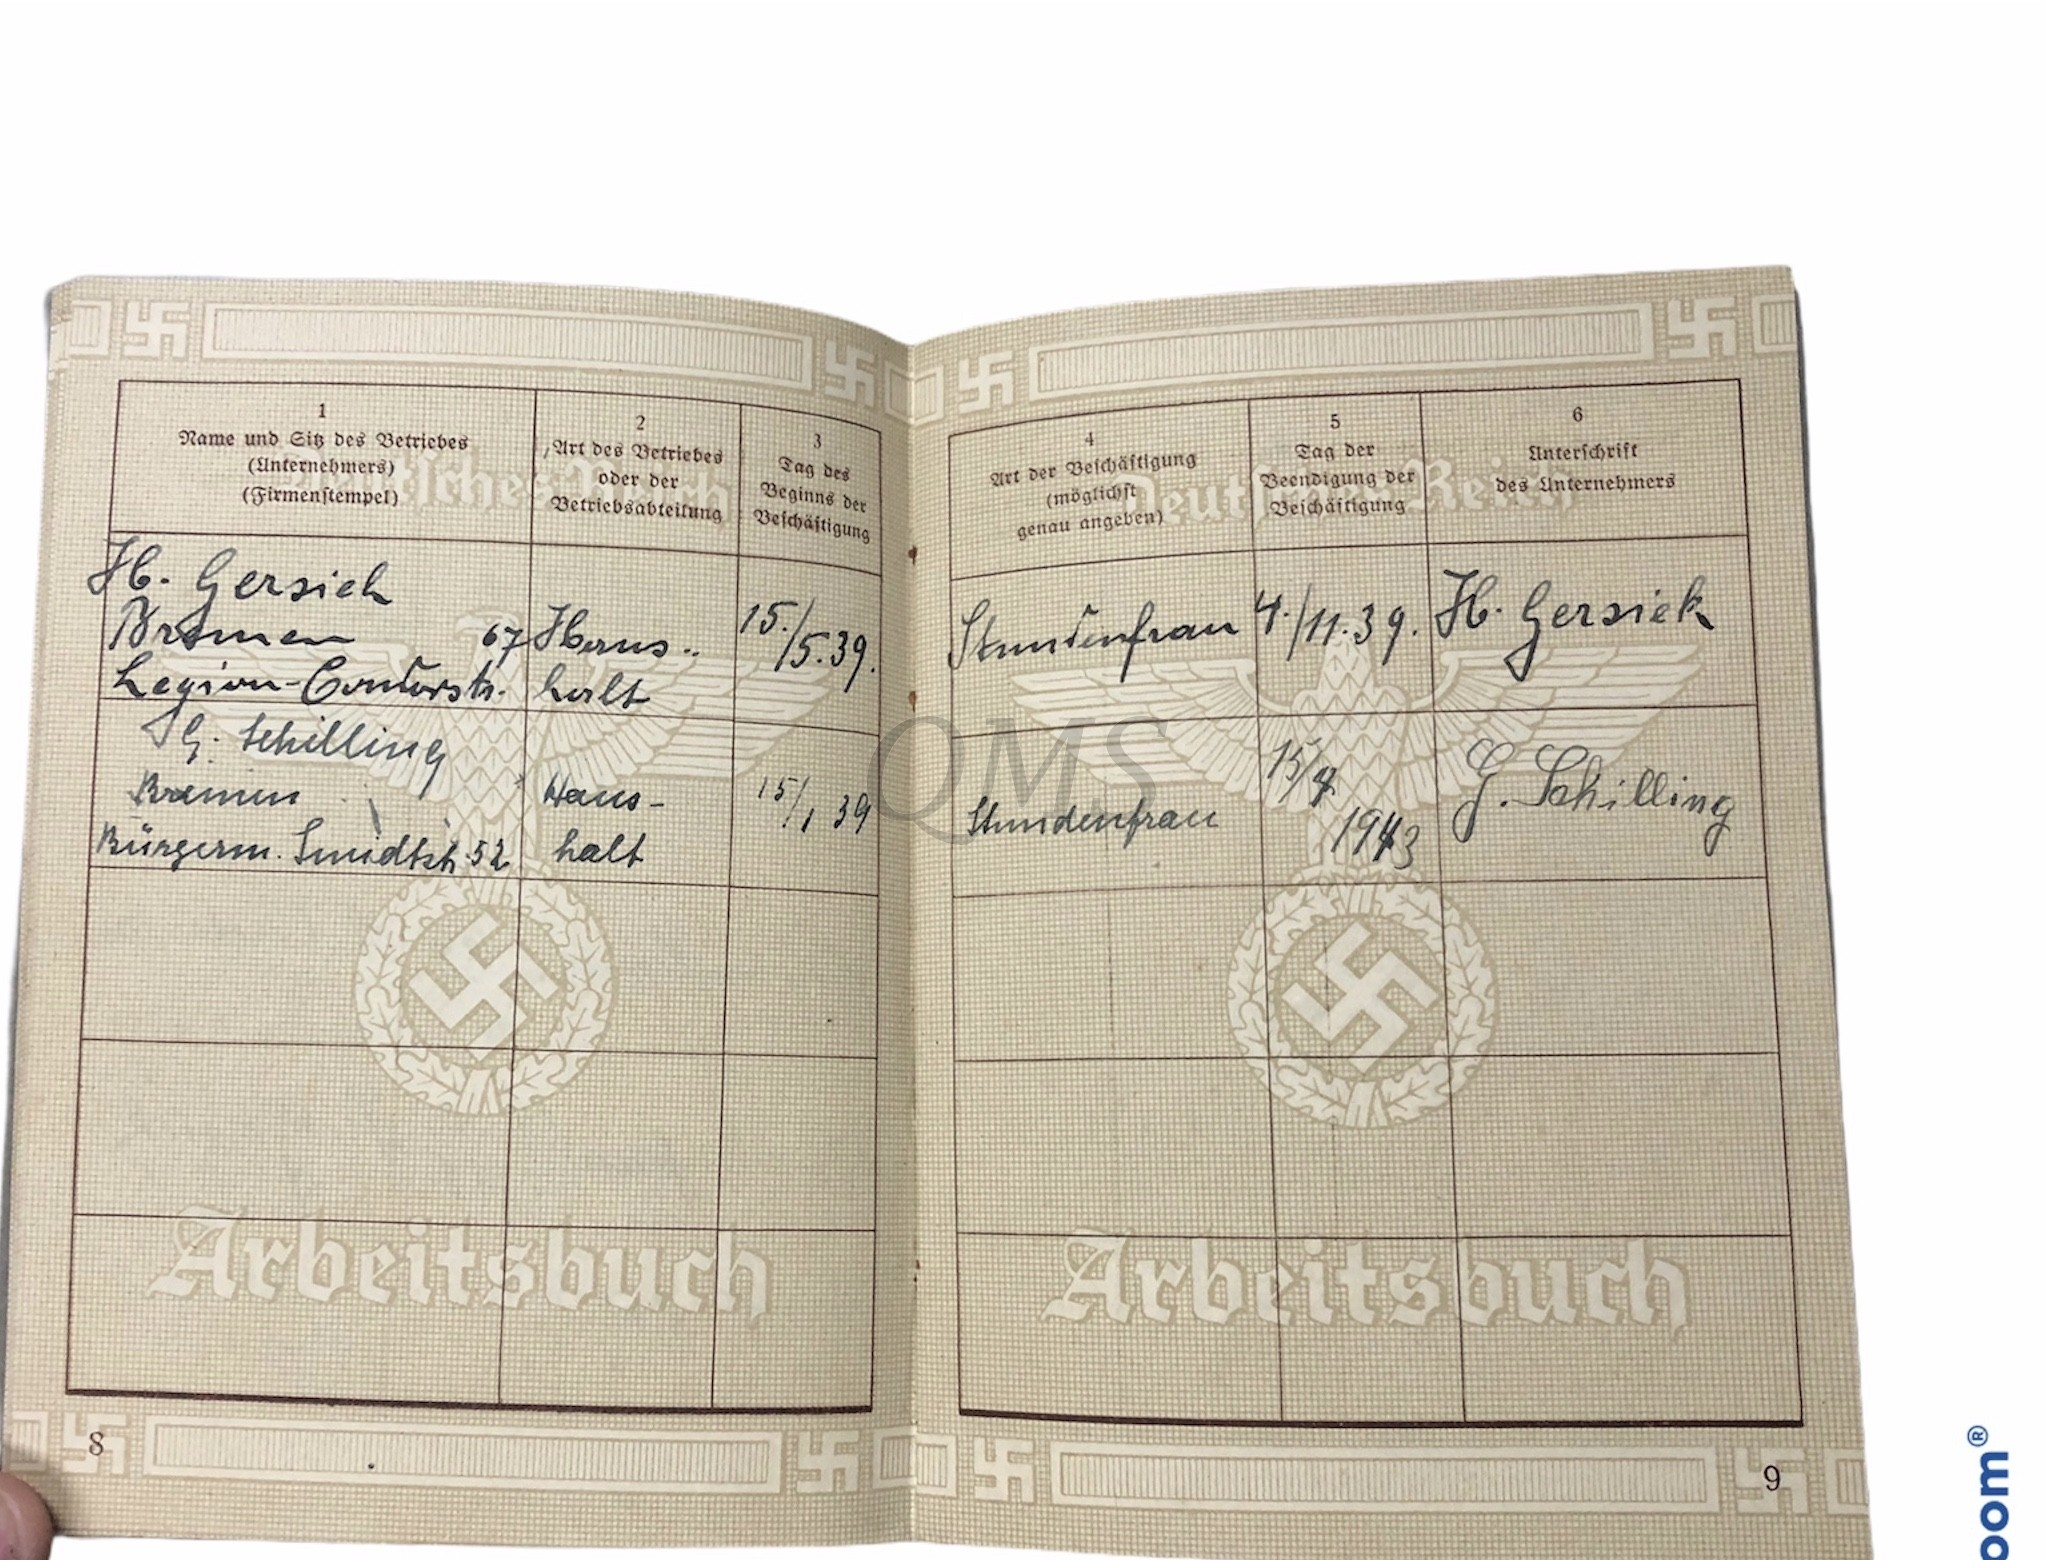 1
Name und Sitz des Betriebes
(Unternehmers)
(Firmenstempel)
2
Art des Betriebes
oder der
Betriebsabteilung
3
Tag des
Beginns der
Beschäftigung
H. Gersiek
Bremen 67
Legion-Condorstr.
Haus-
halt
15./5.39.
G. Schilling
Bremen
Bürgerm. Smidtstr. 52
Haus-
halt
15/1 39
Deutsches Reich
Arbeitsbuch
8
4
Art der Beschäftigung
(möglichst
genau angeben)
5
Tag der
Beendigung der
Beschäftigung
6
Unterschrift
des Unternehmers
Stundenfrau
4./11.39.
H. Gersiek
Stundenfrau
15/4
1943
G. Schilling
Deutsches Reich
Arbeitsbuch
9
QMS
oom®